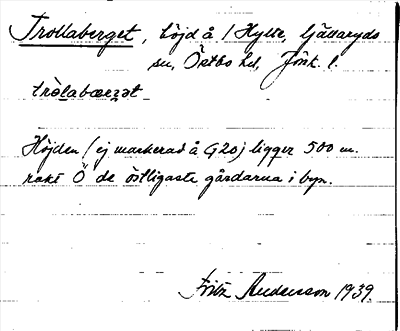 Trollaberget, höjd å Hylte, Gällaryds
sn, Östbo hd, Jönk. l.
tròlabærgət
Höjden (ej markerad å G20) ligger 500 m.
rakt Ö de östligaste gårdarna i byn.
Fritz Andersson 1939.